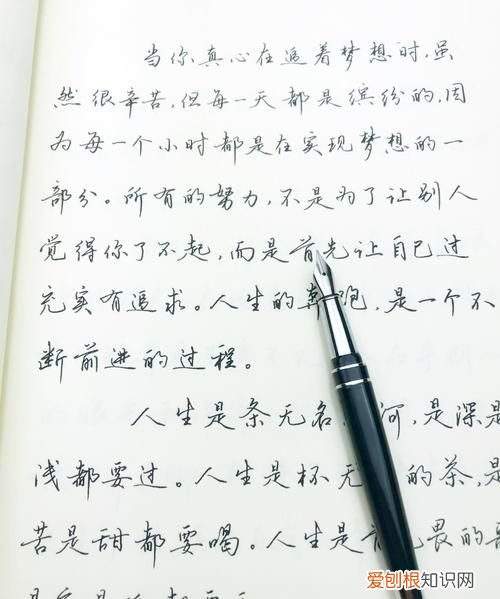 当你真心在追着梦想时,虽
然很辛苦,但每一天都是缤纷的,因
为每一个小时都是在实现梦想的一
部分。所有的努力,不是为了让别人
觉得你了不起,而是首先让自己过
充实有追求。人生的奔跑,是一个不
断前进的过程。
人生是条无名 河,是深是
浅都要过。人生是杯无 的茶,是
苦是甜都要喝。人生是 畏的
爱刨根知识网